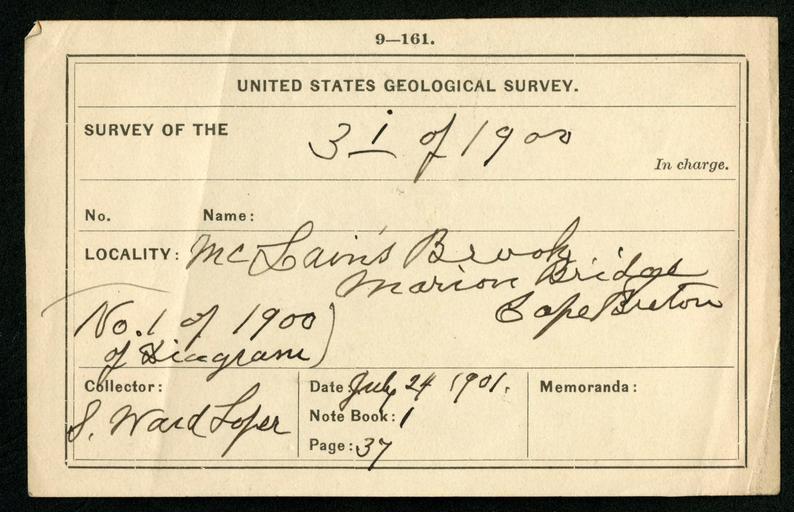 9—161.
UNITED STATES GEOLOGICAL SURVEY.
SURVEY OF THE 3 i of 1900
In charge.
No. Name:
LOCALITY: McLain's Brook
Marion Bridge
Cape Breton
No. 1 of 1900)
of Diagram)
Collector: Date: July 24 1901. Memoranda:
S. Ward Loper Note Book: 1
Page: 37